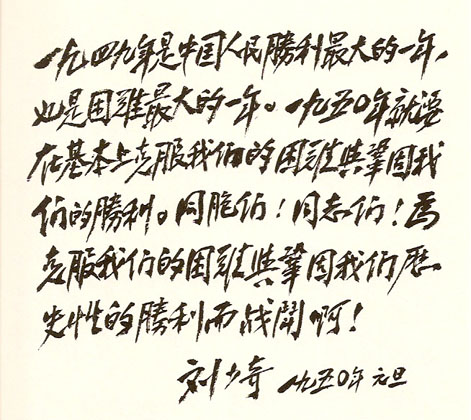 一九四九年是中国人民勝利最大的一年，
也是困難最大的一年。一九五〇年就要
在基本上克服我们的困难與鞏固我
们的勝利。同胞们！同志们！為
克服我们的困难與鞏固我们歷
史性的勝利而战鬪啊！
刘少奇 一九五〇年元旦